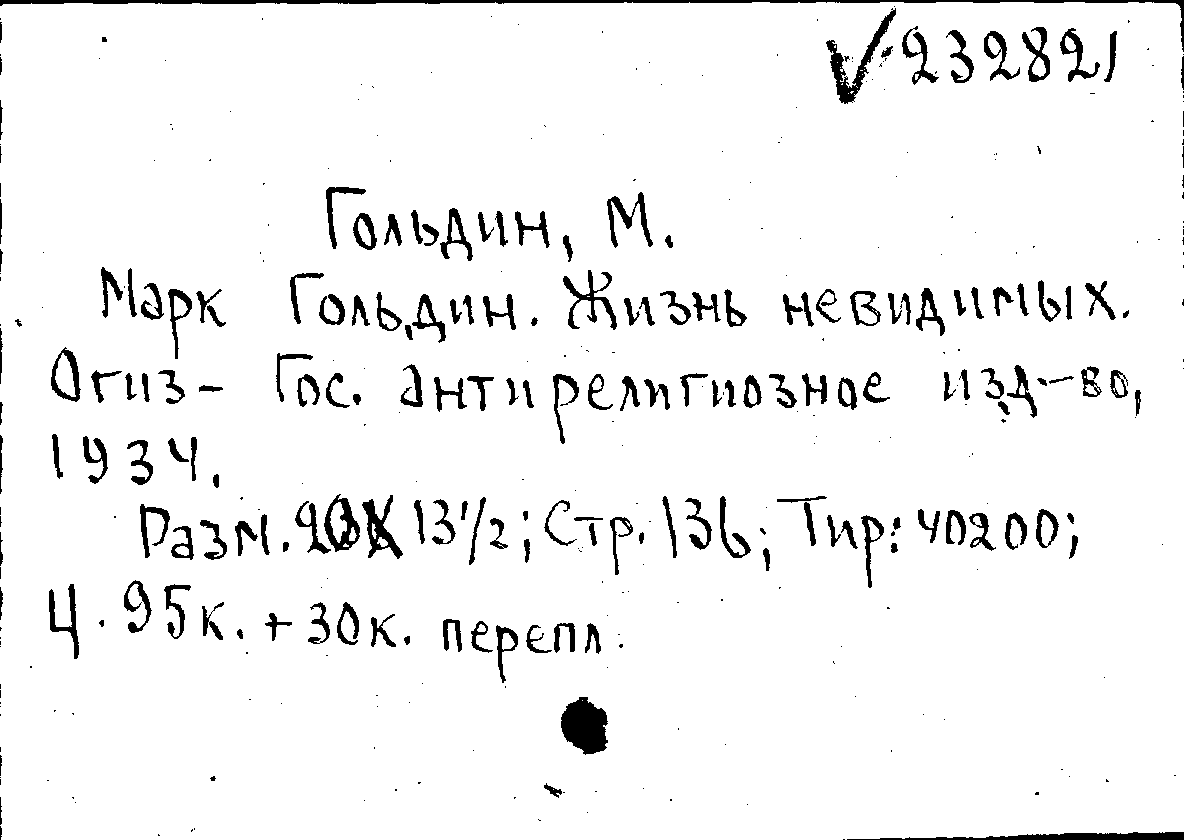 ✓232821
Гольдин, М.
Марк Гольдин. Жизнь невидимых.
Огиз- Гос. антирелигиозное изд-во,
1934.
Разм. 20X 13 1/2; Стр. 136; Тир: 40200;
Ц. 95к. + 30к. перепл.